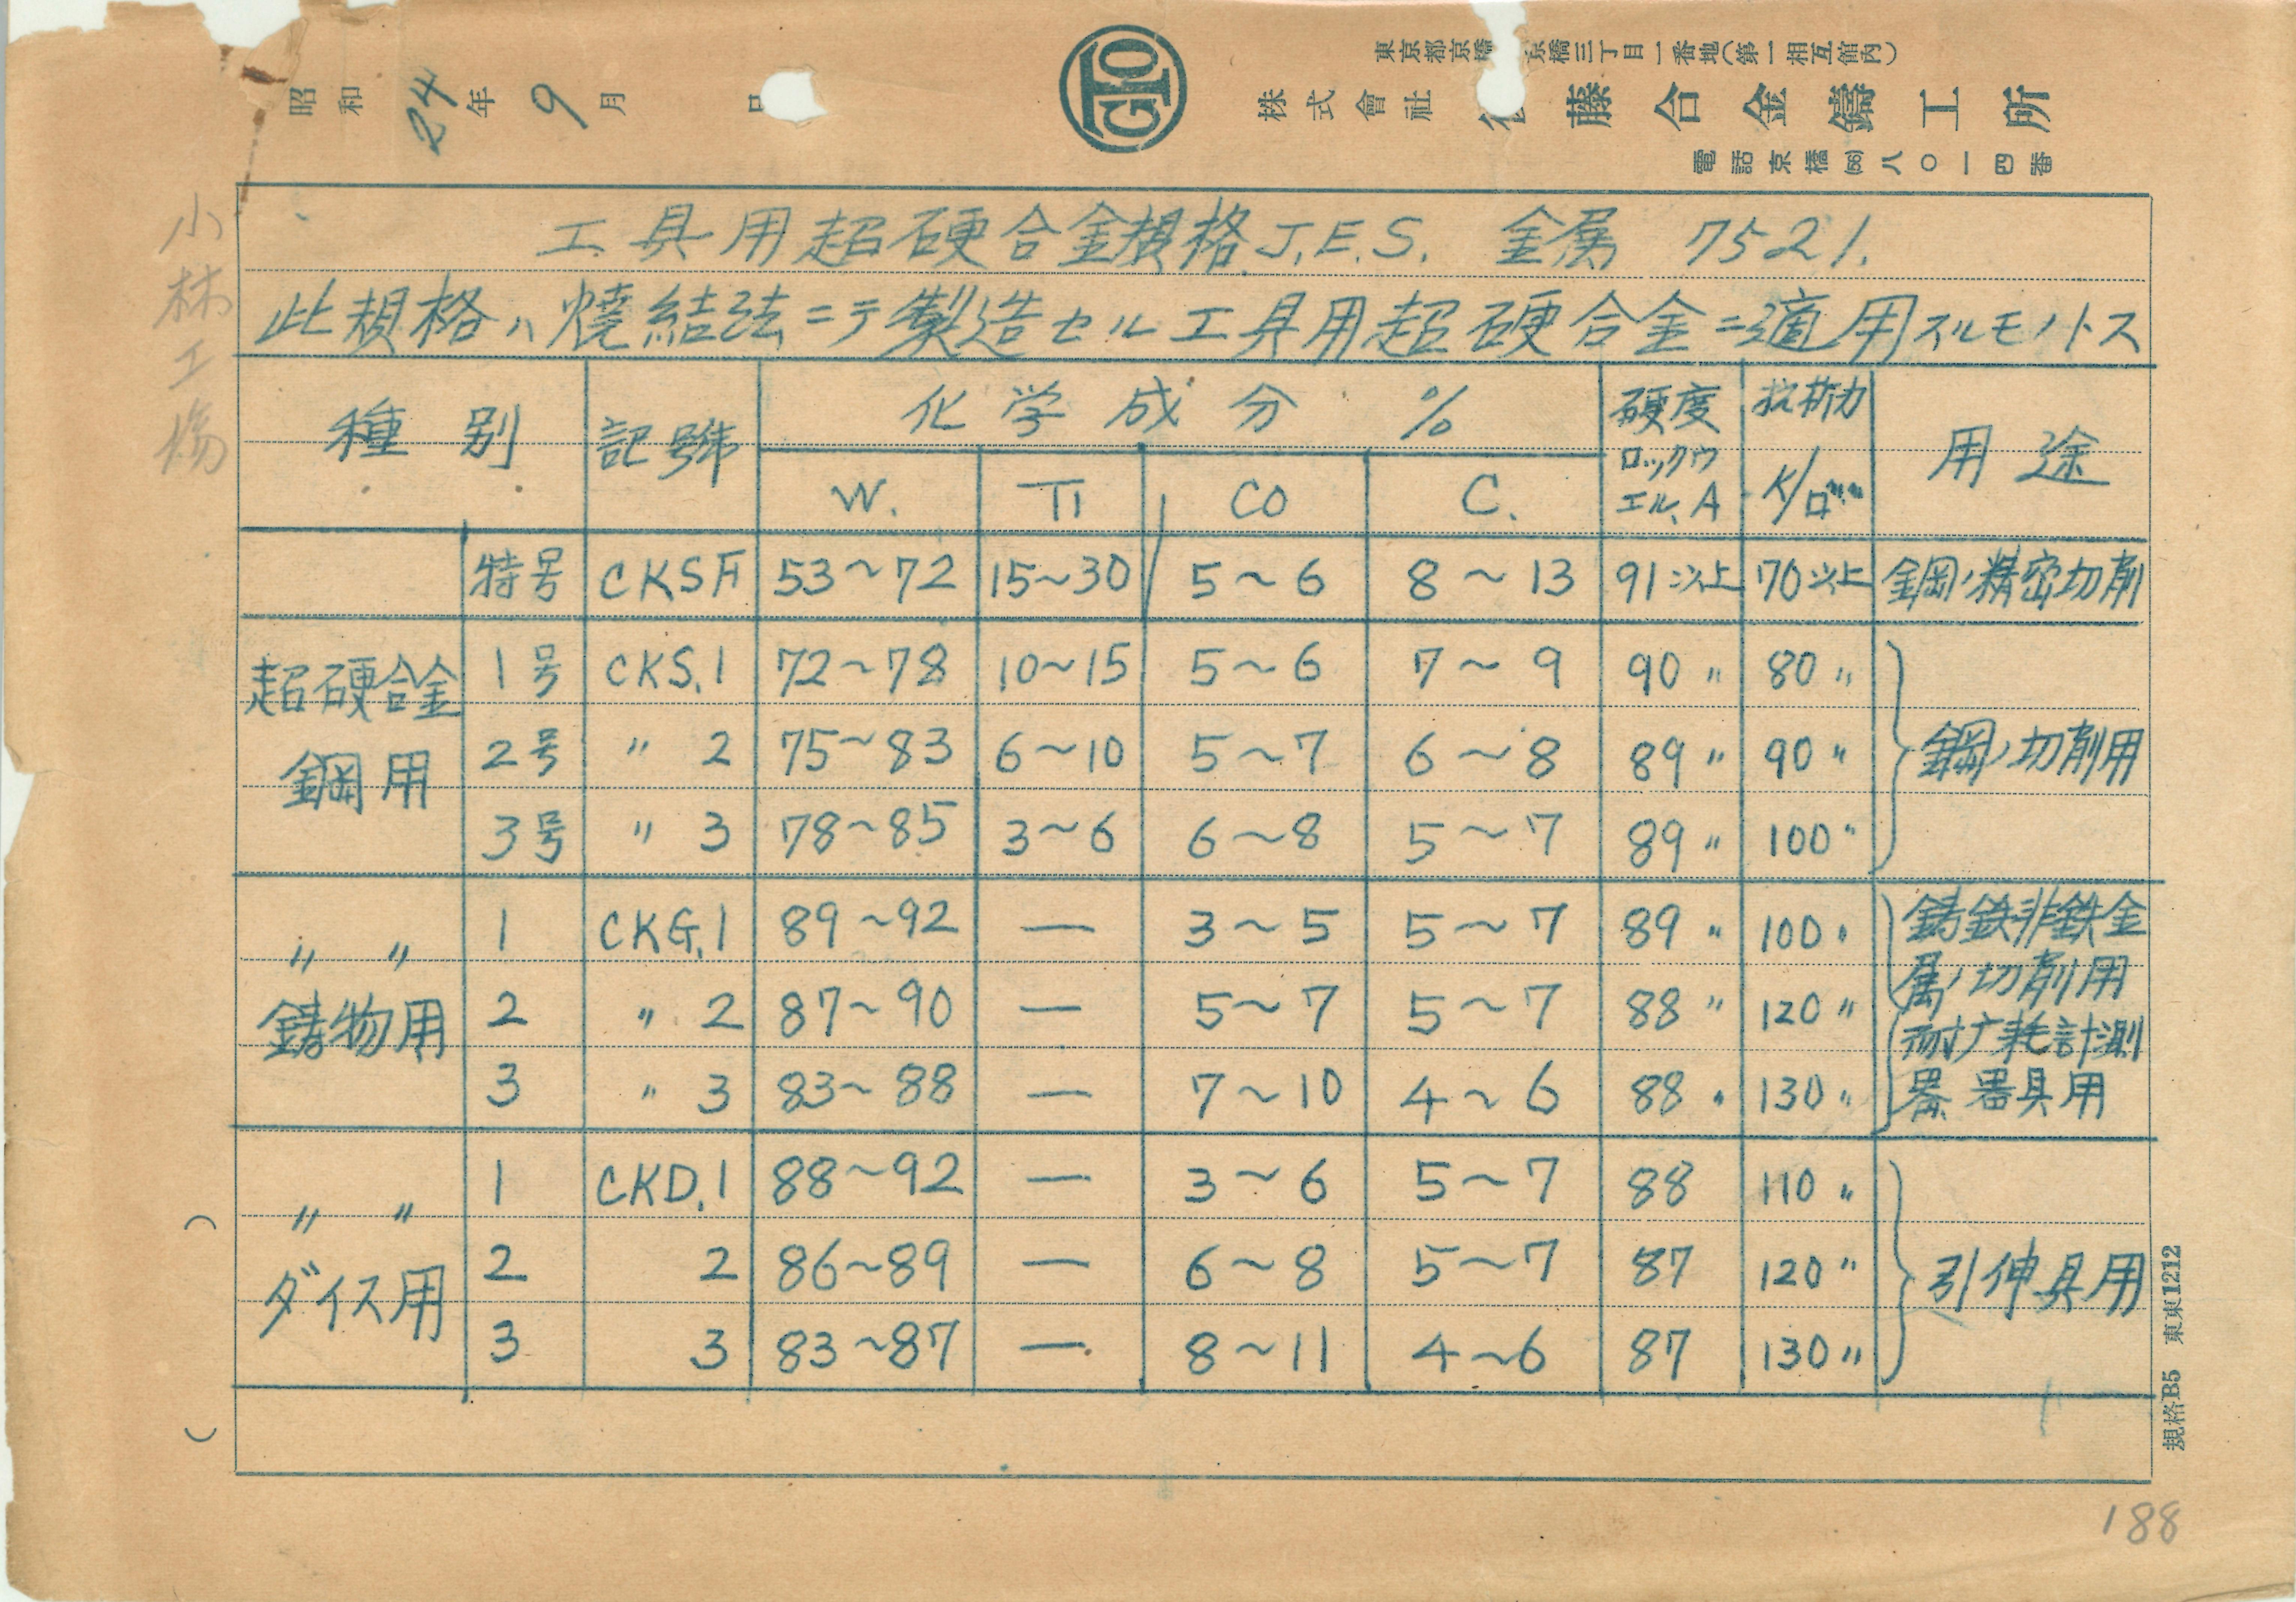 昭和24年9月
GTO
東京都京橋 京橋三丁目一番地(第一相互館内)
株式會社 藤合金鑄工所
電話京橋(56)八〇一四番
小林工場
工具用超硬合金規格 J.E.S. 金属 7521.
此規格ハ焼結法ニテ製造セル工具用超硬合金ニ適用スルモノトス
種別 記號 化学成分 % 硬度 ロックウエル、A 抗折力 K/ロ゛ 用途
W. Ti CO C.
特号 CKSF 53~72 15~30 5~6 8~13 91以上 70以上 鋼ノ精密切削
超硬合金
鋼用
1号 CKS.1 72~78 10~15 5~6 7~9 90〃 80〃
2号 〃2 75~83 6~10 5~7 6~8 89〃 90〃 鋼ノ切削用
3号 〃3 78~85 3~6 6~8 5~7 89〃 100〃
〃 〃
鋳物用
1 CKG.1 89~92 — 3~5 5~7 89〃 100〃
2 〃2 87~90 — 5~7 5~7 88〃 120〃
3 〃3 83~88 — 7~10 4~6 88〃 130〃
鋳鉄非鉄金
属ノ切削用
耐广耗計測
器 器具用
〃 〃
ダイス用
1 CKD.1 88~92 — 3~6 5~7 88 110〃
2 2 86~89 — 6~8 5~7 87 120〃 引伸具用
3 3 83~87 — 8~11 4~6 87 130〃
規格B5 東東1212
188